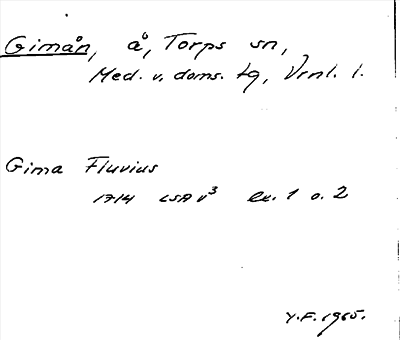 Gimån, å, Torps sn,
Med. v. doms. tg, Vrnl. l.
Gima Fluvius
1714 LSA v³ ex. 1 o. 2
Y.F. 1965.